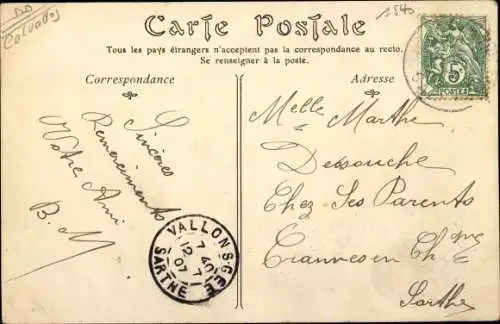 DD
Calvados
1540
Carte Postale
Tous les pays étrangers n'acceptent pas la correspondance au recto.
Se renseigner à la poste.
Correspondance
Adresse
5
POSTES
Sincères
Remerciments
Votre Ami
B. M
VALLON-S-GÉE
7 40
12 7
07
SARTHE
Melle Marthe
Dessouche
Chez Ses Parents
Crannes en Chgne
Sarthe